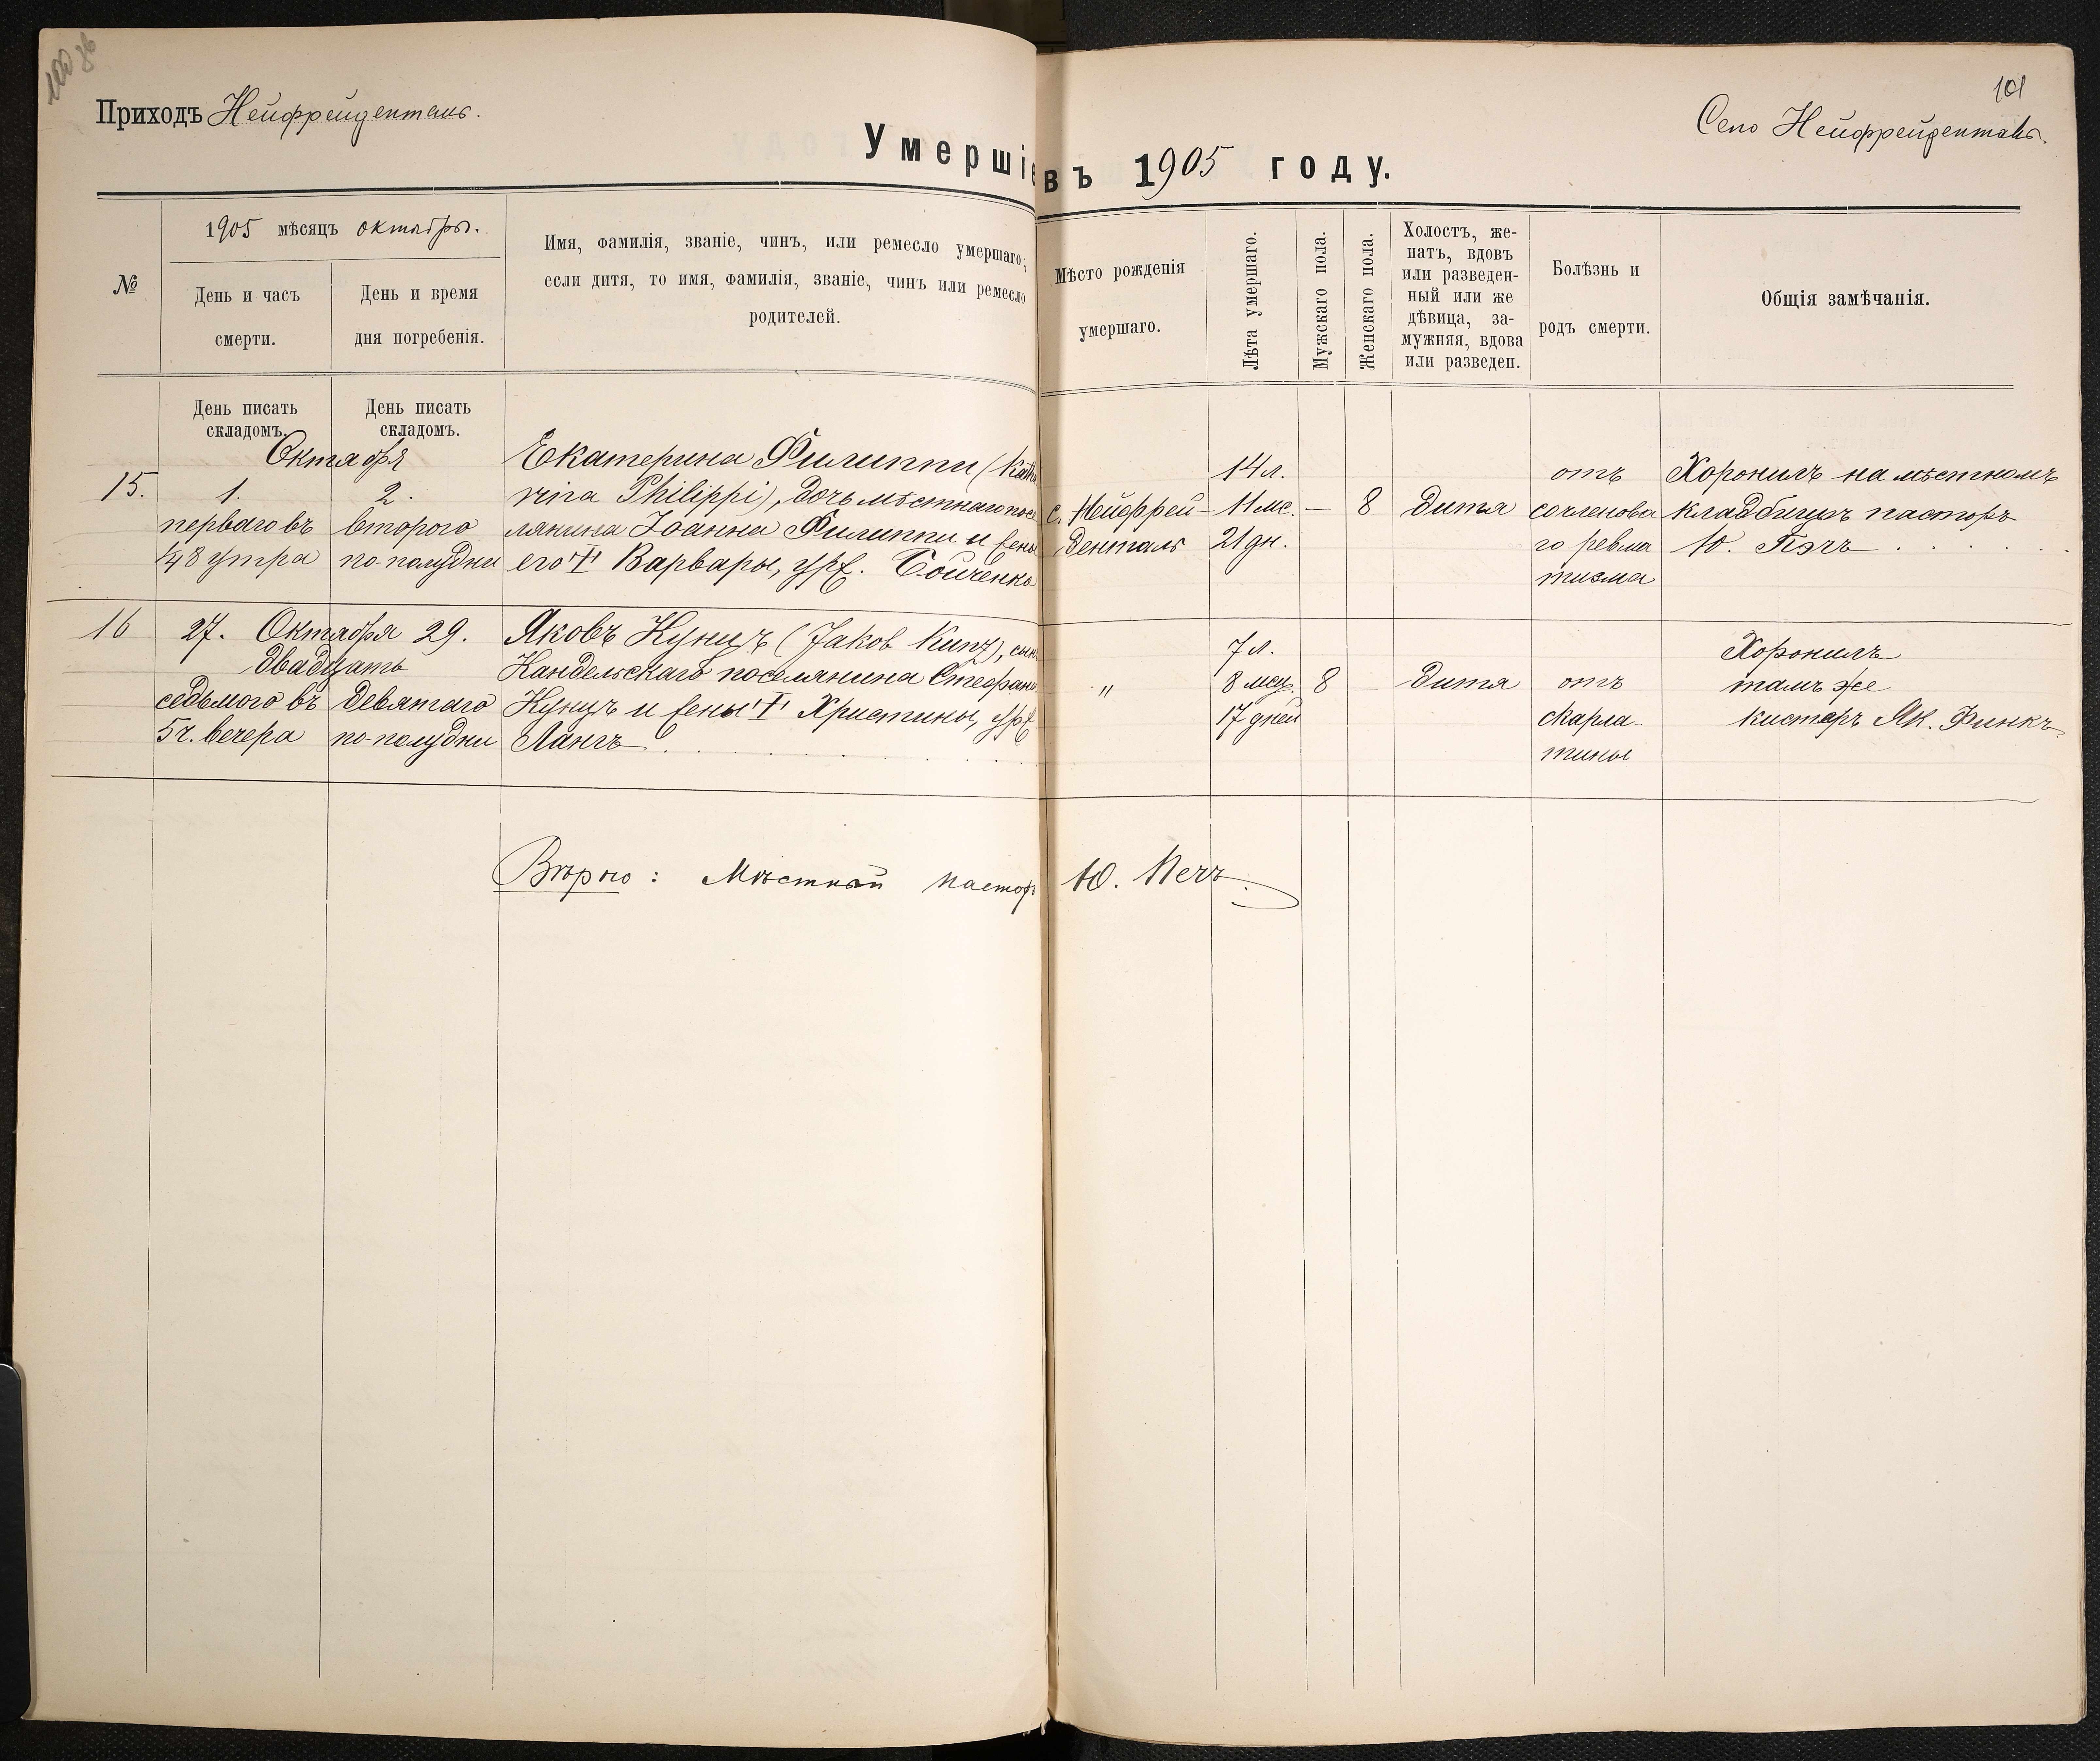 Приходъ Нейфрейденталь.
101
Село Нейфрейденталь.
Умершіе въ 1905 году.
№
1905 мѣсяцъ октябрь.
День и часъ
смерти.
День и время
дня погребенія.
Имя, фамилія, званіе, чинъ, или ремесло умершаго;
если дитя, то имя, фамилія, званіе, чинъ или ремесло
родителей.
Мѣсто рожденія
умершаго.
Лѣта умершаго.
Мужскаго пола.
Женскаго пола.
Холостъ, же-
натъ, вдовъ
или разведен-
ный или же
дѣвица, за-
мужняя, вдова
или разведен.
Болѣзнь и
родъ смерти.
Общія замѣчанія.
День писать
складомъ.
День писать
складомъ.
Октября
15.
1.
перваго въ
8 утра
2.
второго
по-полудни
Екатерина Филиппи (Kath
rina Philippi), дочь мѣстнаго посе
лянина Іоанна Филиппи и жены
его Варвары, урж. Бойченко
с. Нейфрей-
денталь
14 л.
11 мс.
21 дн.
—
8
Дитя
отъ
сочленова
го ревма
тизма
Хоронилъ на мѣстномъ
кладбищѣ пасторъ
Ю. Пэчъ
16
27. Октября 29.
двадцать
седьмого въ
5 ч. вечера
девятаго
по-полудни
Яковъ Кунцъ (Jakob Kunz), сынъ
Кандельскаго поселянина Стефана
Кунцъ и жены Христины, урж.
Лангъ
"
7 л.
8 мец.
17 дней
8
—
Дитя
отъ
скарла-
тины
Хоронилъ
тамъ же
кистеръ Як. Финкъ
Вѣрно: Мѣстный пасторъ Ю. Печъ